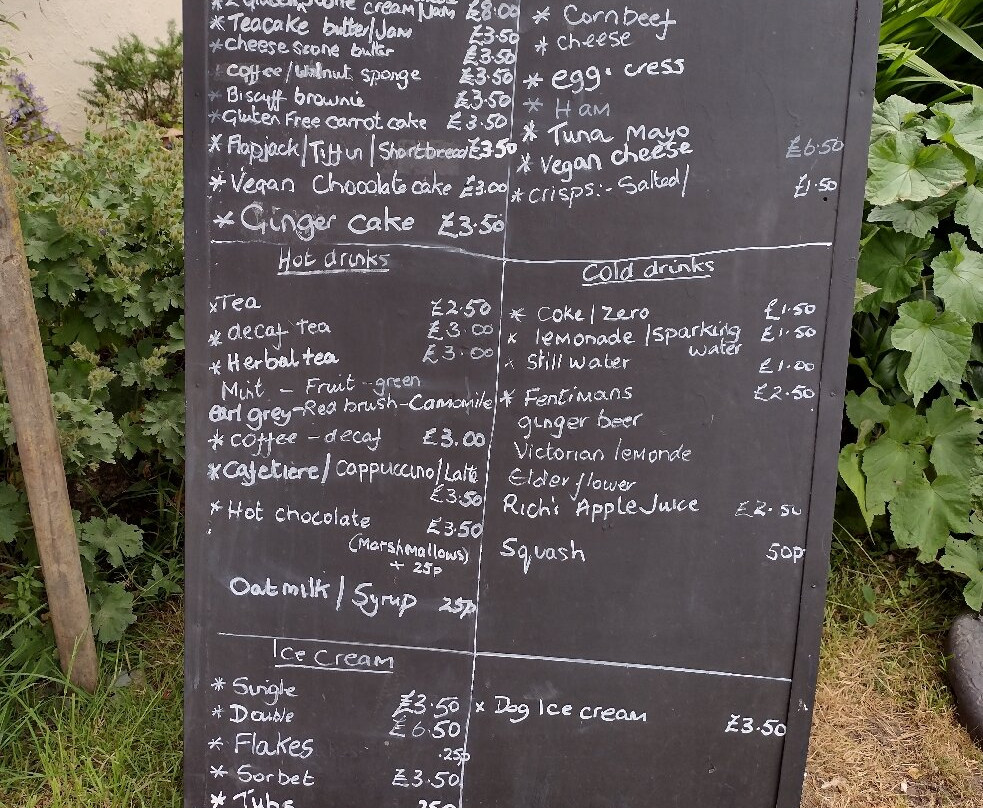 cream/Jam £8.00
* Teacake butter/Jam £3.50
* Cheese scone butter £3.50
coffee/Walnut sponge £3.50
* Biscuff brownie £3.50
* Gluten Free carrot cake £3.50
* Flapjack/Tiffin/Shortbread £3.50
* Vegan Chocolate cake £3.00
* Ginger cake £3.50
* Corn beef
* cheese
* egg. cress
* Ham
* Tuna Mayo
* Vegan cheese £6.50
* crisps:- Salted/ £1.50
Hot drinks
* Tea £2.50
* decaf tea £3.00
* Herbal tea £3.00
Mint - Fruit - green
earl grey - Rea brush - Camomile
* coffee - decaf £3.00
* Cafetiere/Cappuccino/Latte
£3.50
* Hot chocolate £3.50
(Marshmallows)
+ 25p
Oatmilk/Syrup 25p
Cold drinks
* Coke/Zero £1.50
* lemonade/Sparking £1.50
water
* Still water £1.00
* Fentimans £2.50
ginger beer
Victorian lemonde
Elderflower
Rich's Apple Juice £2.50
Squash 50p
Ice Cream
* Single £3.50
* Double £6.50
* Flakes .25p
* Sorbet £3.50
* Tubs 250
* Dog Ice cream £3.50